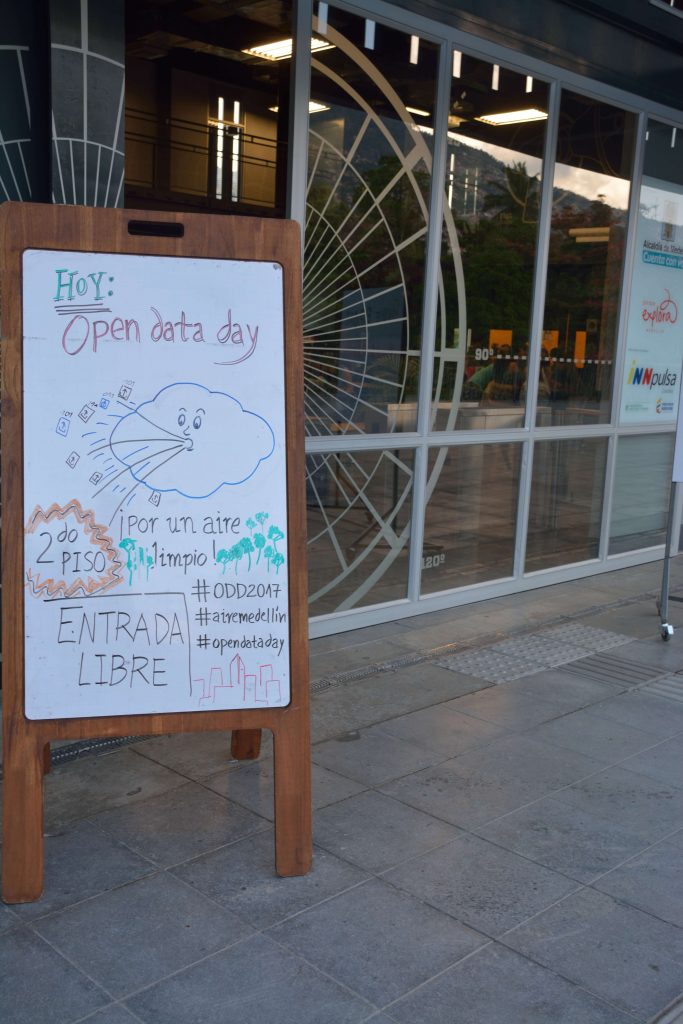 Hoy:
Open data day
2do
PISO
¡Por un aire
limpio!
#ODD2017
#airemedellín
#opendataday
ENTRADA
LIBRE
90º
120º
Alcaldía de
Cuenta con
explora
iNNpulsa